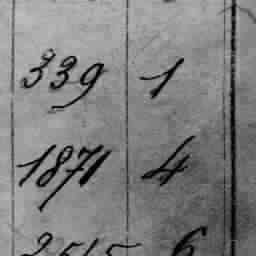 339 1
1871 4
2515 6